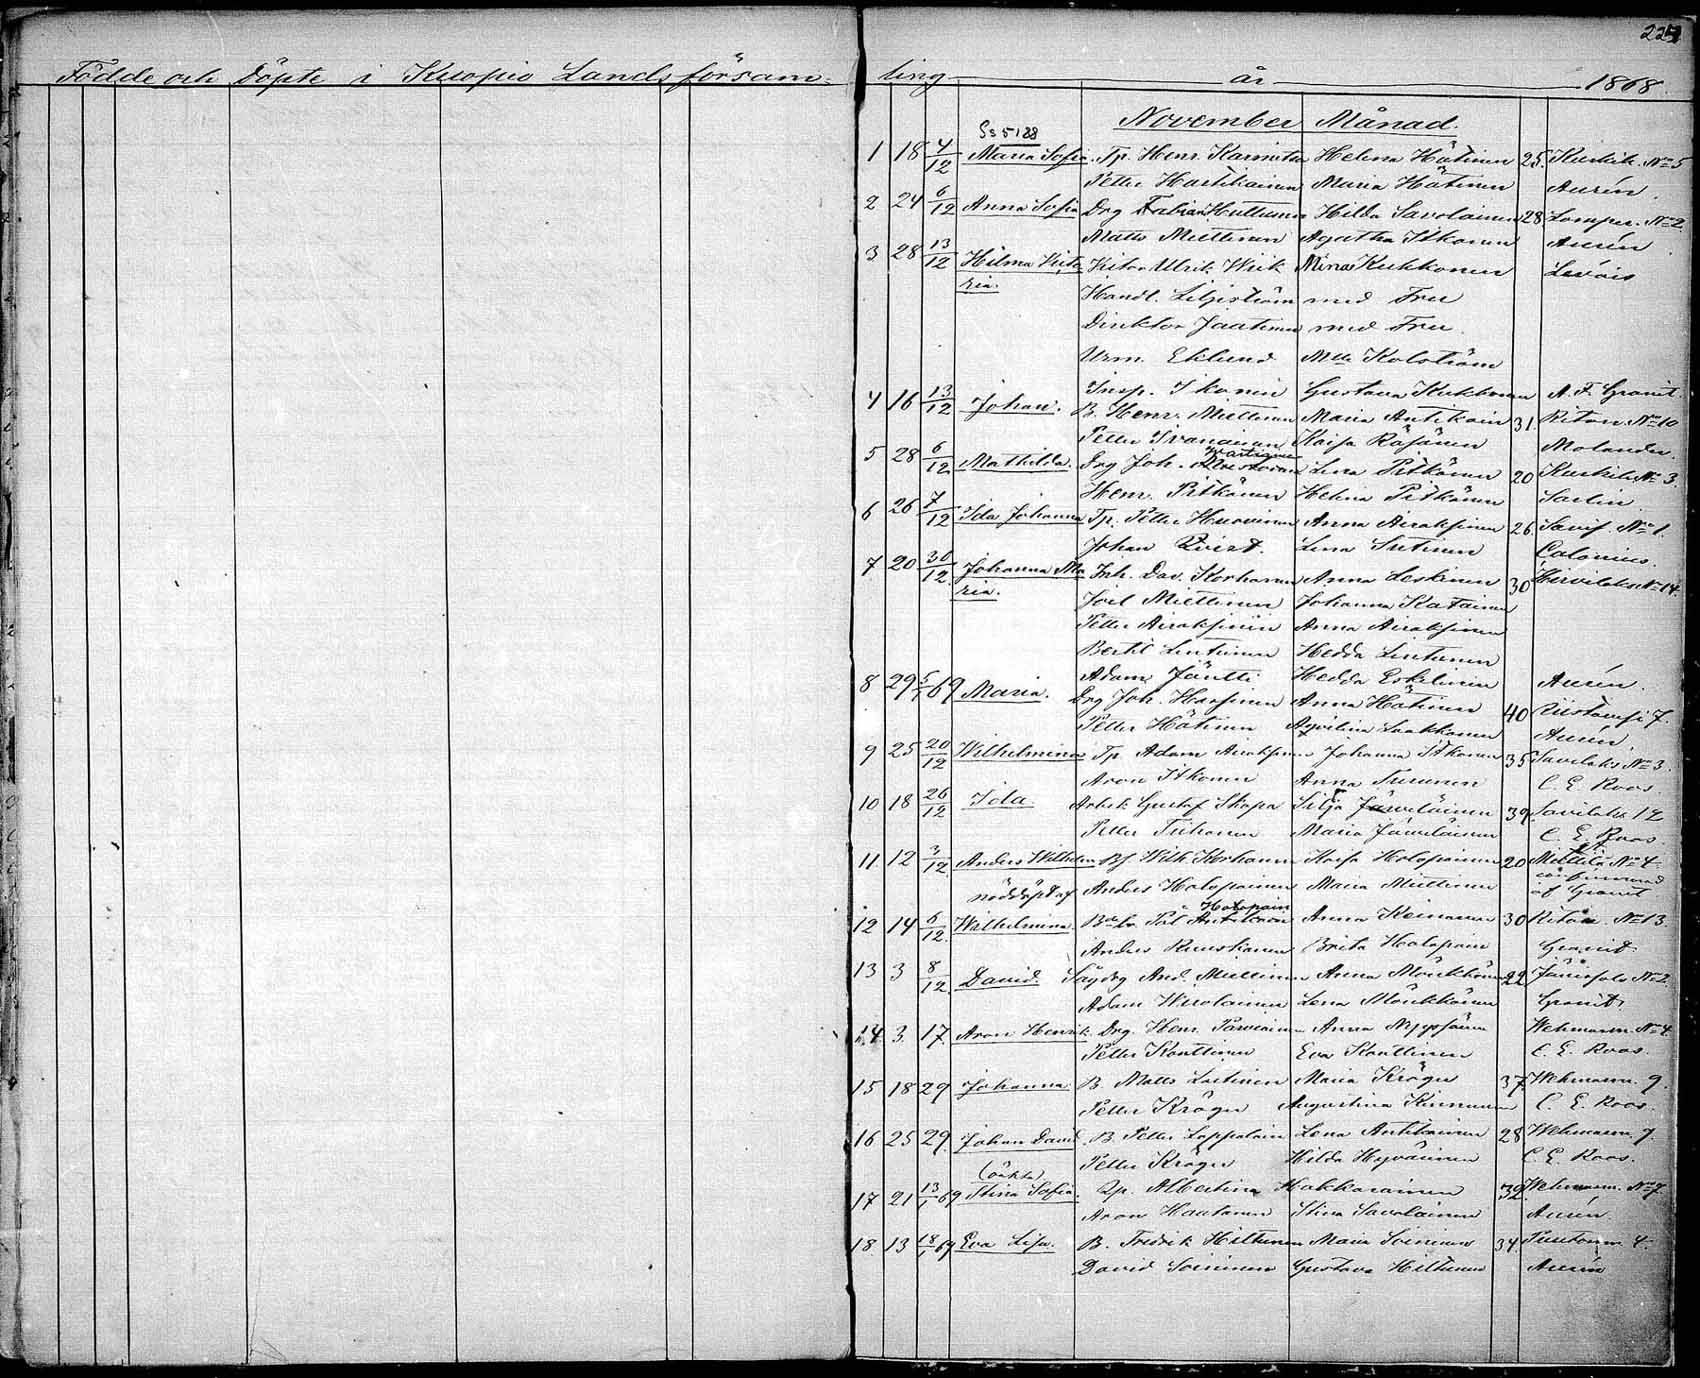 227
Födde och Döpte i Kuopio Landsförsam=ling år 1868
November Månad.
Ss 5/28
1 18 4/12 Maria Sofia. Tp. Henr. Karinitsa Helena Hätinen 25. Kurkih. No 5
Petter Hartikainen Maria Hätinen Aurén.
2 24 6/12 Anna Sofia Drg Fabian Huttunen Hilda Savolainen 28 No 2
Matts Miettinen Agatha Itkonen Aurén
3 28 13/12 Hilma Victo Victor Ulrik Wiik Mina Kukkonen Leväis
ria. Handl. Liljeström med Fru
Direktor Jaatinen med Fru
Urm. Eklund Mlle Kolström
Insp. Ikonen Gustava Kukkonen A. F. Granit
4 16 13/12 Johan. B. Henr. Miettinen Maria Antikain 31. Riton. No 10
Petter Kaisa Räsänen Molander.
5 28 6/12 Mathilda. Drg Joh. Lena Pitkänen 20 Kurkih. No 3.
Henr. Pitkänen Helena Pitkänen Sarlin
6 26 7/12 Ida Johanna Tp. Petter Huovinen Anna Airaksinen 26 No 1.
Johan Qvist. Lena Sutinen Calonius.
7 20 30/12 Johanna Ma Inh. Dav. Korhonen Anna Leskinen 30 Hirvilaks No 14.
ria. Joel Miettinen Johanna Katainen
Petter Airaksinen Anna Airaksinen
Bertil Lintunen Hedda Lintunen
Adam Jäntti Hedda Eskelinen Aurén.
8 29 5/1 69 Maria. Drg Joh. Anna Hätinen 40 7.
Petter Hätinen Laakkonen Aurén
9 25 20/12 Wilhelmina Tp Adam Airaksinen Johanna Itkonen 35 Savilaks No 3.
Aron Itkonen Anna Turunen C. E. Roos.
10 18 26/12 Ida. Gustaf Skopa Silja Järveläinen 39. Savilaks 12
Petter Tiihonen Maria Järveläinen C. E. Roos
11. 12 3/12 Anders Wilhelm Bs Wilh. Korhonen Kaisa Holopainen 20 No 4
nöddöpt af Anders Holopainen Maria Miettinen af Granit
Holopain
12 14 6/12. Wilhelmina Pål Antikainen Anna Keinonen 30 No 13.
Anders Ruuskanen Brita Holopain Granit.
13 3 8/12. David. And. Miettinen Anna Mönkkönen 22 No 2.
Adam Wirolainen Lena Mönkkönen Granit.
14 3. 17 Aron Henrik Drg. Henr. Parviainen Anna Wehmasm. No 4.
Petter Konttinen Eva Konttinen C. E. Roos.
15 18 29 Johanna B. Matts Laitinen Maria Kröger 37 Wehmasm. 9.
Petter Kröger Augustina Kinnunen C. E. Roos.
16 25 29. Johan David B. Petter Lappalain Lena Antikainen 28 Wehmasm. 7.
Petter Kröger Hilda Hyvärinen C. E. Roos.
(oäkta)
17 21 13/1 69 Stina Sofia. Albertina Hakkarainen 32 Wehmasm. No 7
Aron Hautanen Stina Savolainen Aurén.
18 13 18/1 69 Eva Lisa. B. Fredrik Hiltunen Maria Soininen 34 4.
David Soininen Gustava Hiltunen Aurén